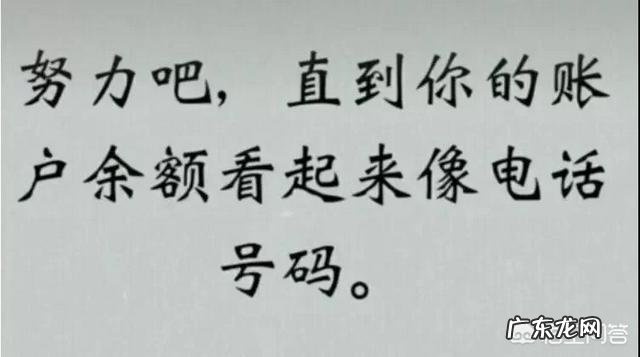 努力吧，直到你的账
户余额看起来像电话
号码。
广东龙网